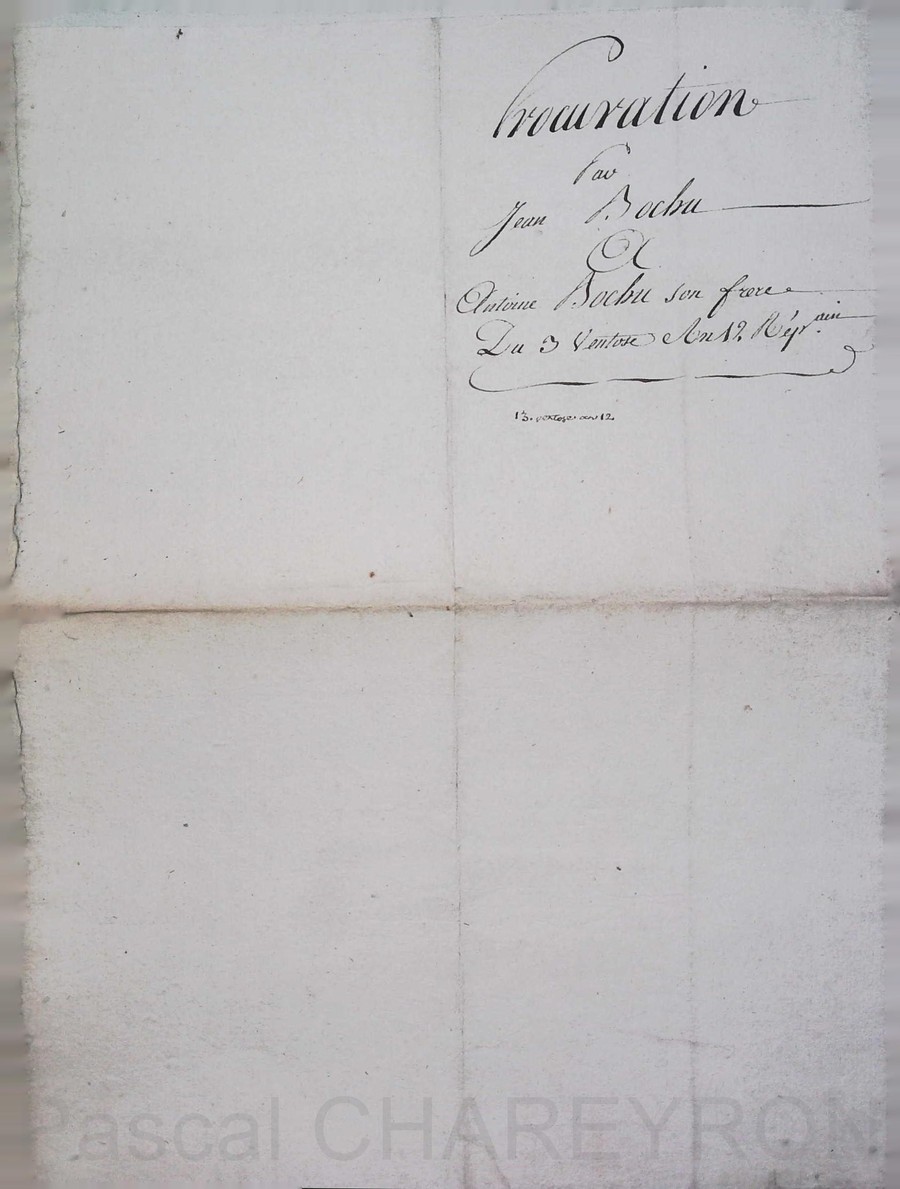 Procuration
Par
Jean Bochu
A
Antoine Bochu son frere
Du 3 Ventose An 12 Rép.ain
13. ventose an 12
Pascal CHAREYRON